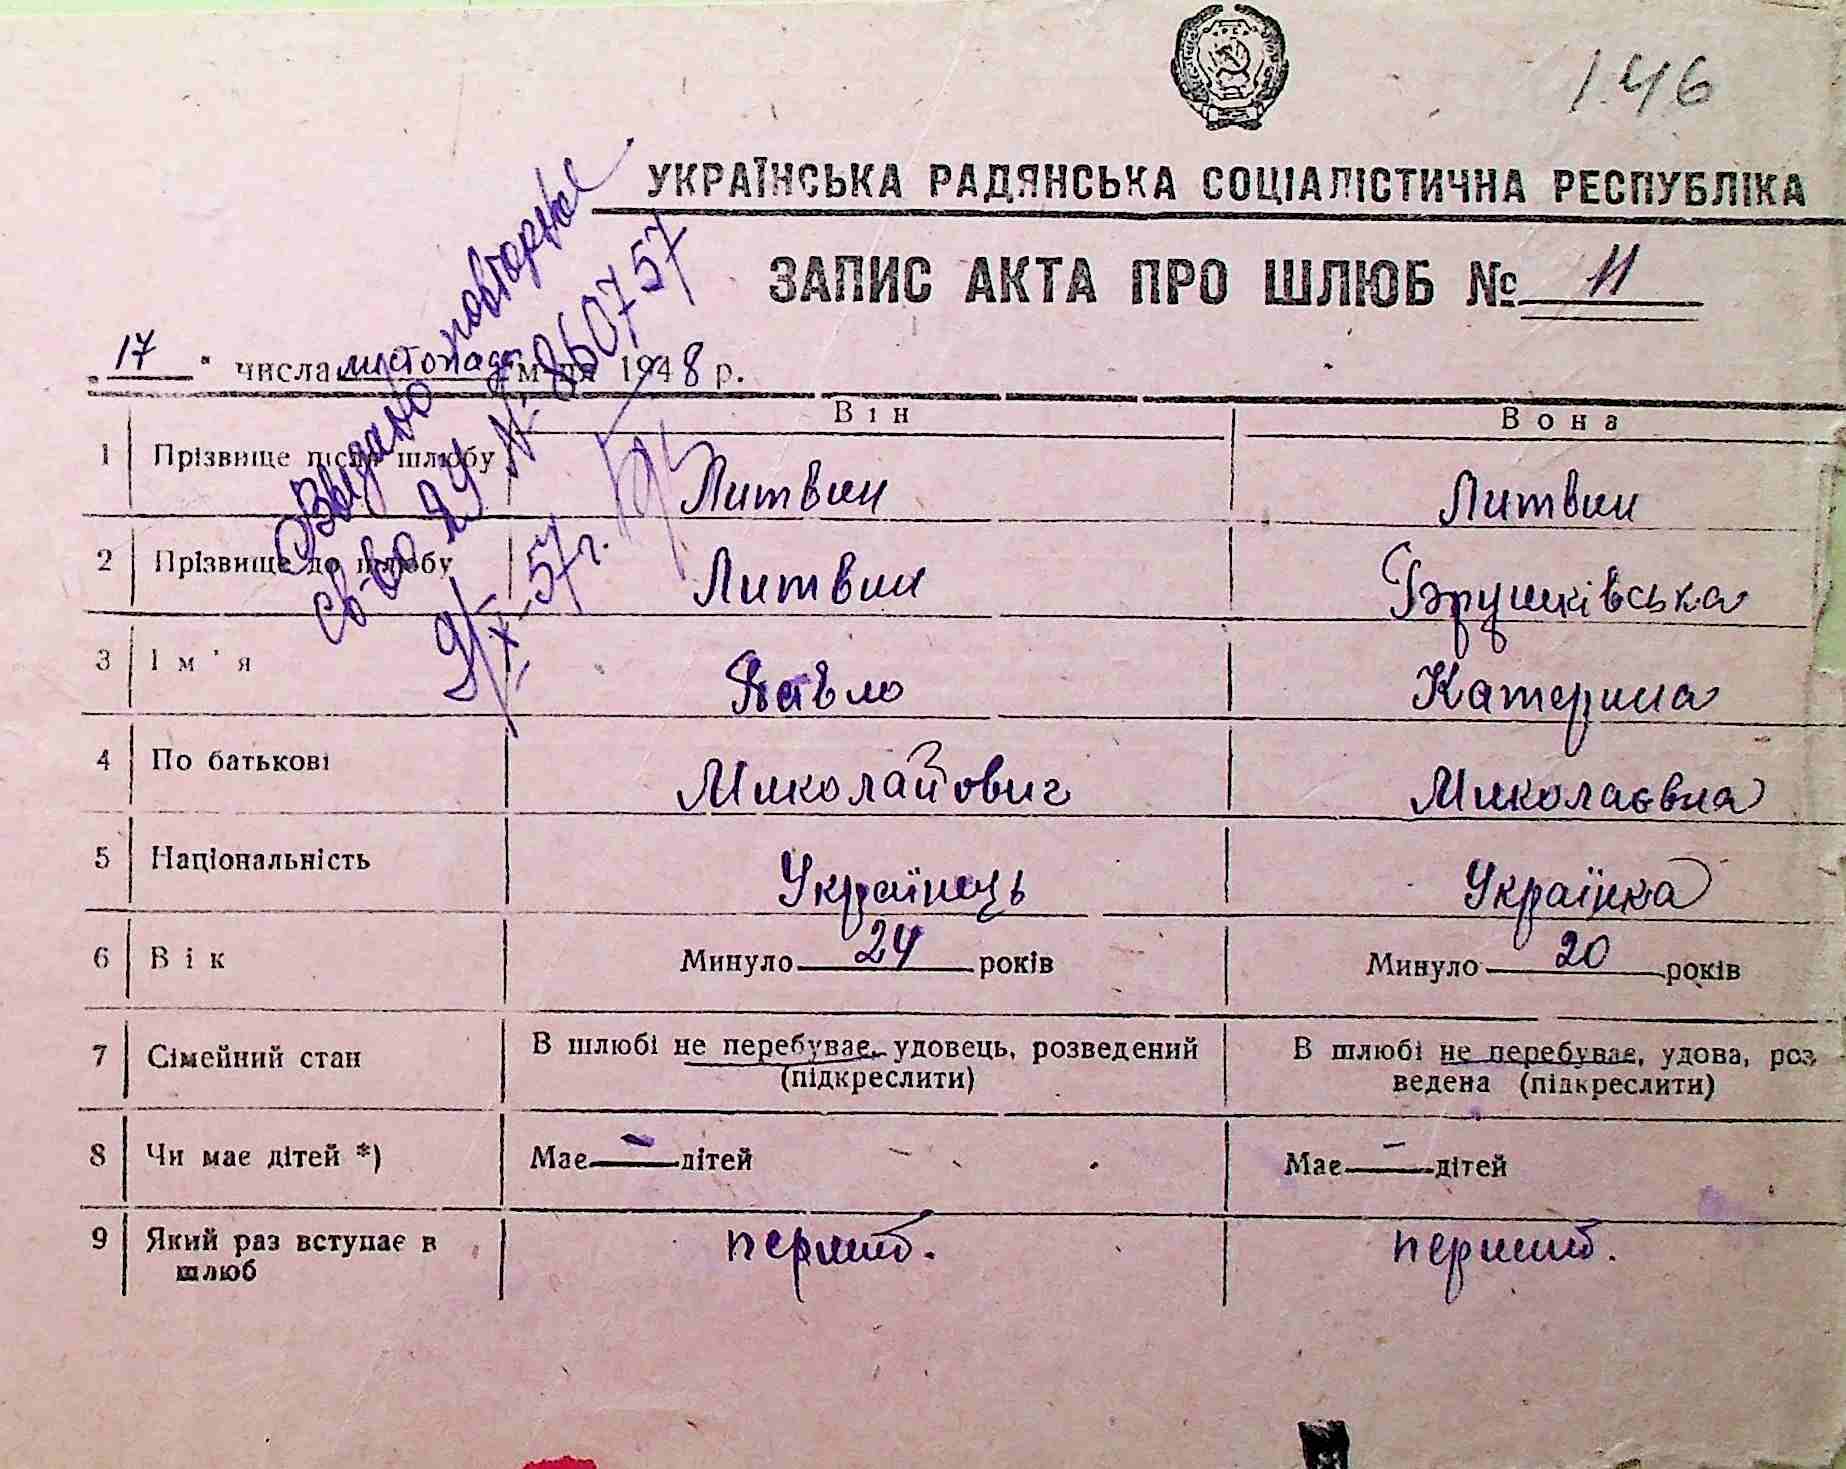 146
УКРАЇНСЬКА РАДЯНСЬКА СОЦІАЛІСТИЧНА РЕСПУБЛІКА
ЗАПИС АКТА ПРО ШЛЮБ № 11
17 " числа листопада м-ця 1948 р.
Він Вона
1 Прізвище після шлюбу Литвин Литвин
2 Прізвище до шлюбу Литвин
3 Ім'я Павло Катерина
4 По батькові Миколайович Миколаєвна
5 Національність Українець Українка
6 Вік Минуло 24 років Минуло 20 років
7 Сімейний стан В шлюбі не перебуває, удовець, розведений (підкреслити) В шлюбі не перебуває, удова, роз
ведена (підкреслити)
8 Чи має дітей *) Має — дітей Має — дітей
9 Який раз вступає в шлюб перший. перший.
Видано повторне
св-во ЯУ № 860757
9/X-57г.